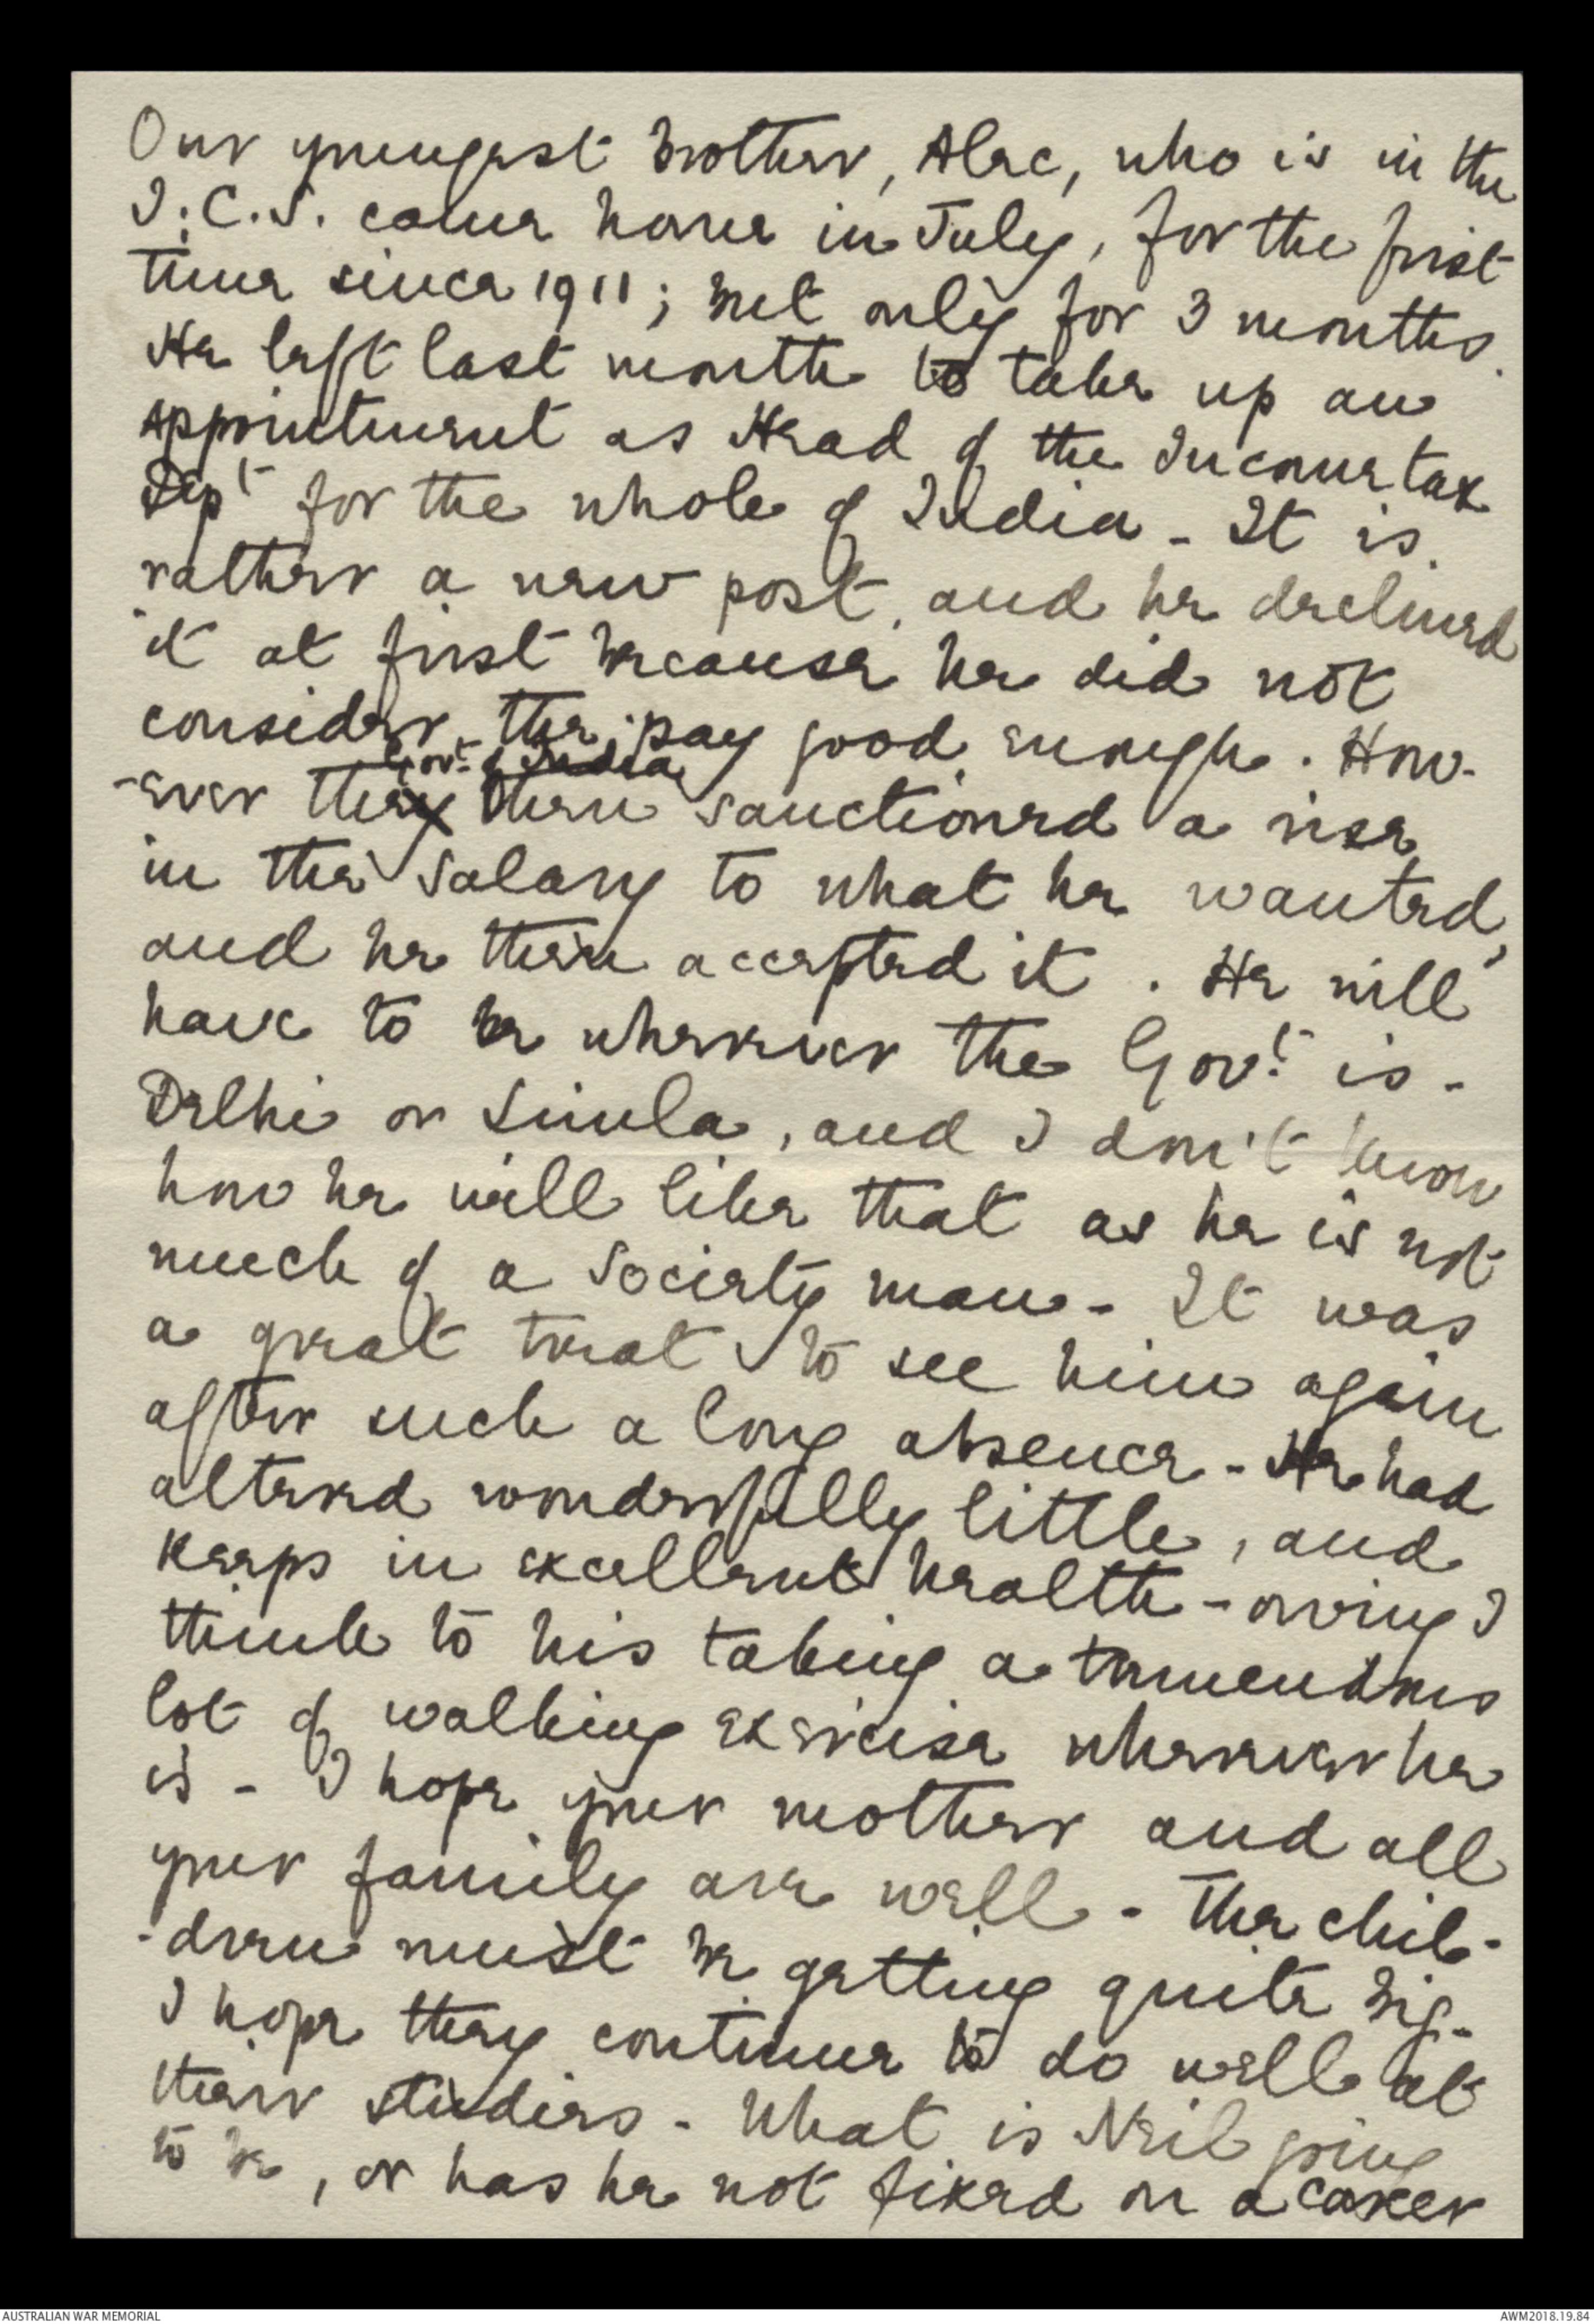 Our youngest brother, Alec, who is in the
I.C.S. came home in July, for the first
time since 1911; but only for 3 months.
He left last month to take up an
appointment as Head of the Income tax
Dept for the whole of India - It is
rather a new post, and he declined
it at first because he did not
consider the pay good enough. How-
Govt of India
-ever they then sanctioned a rise
in the salary to what he wanted,
and he then accepted it. He will
have to be wherever the Govt is -
Delhi or Simla, and I don't know
how he will like that as he is not
much of a Society man - It was
a great treat to see him again
after such a long absence - He had
altered wonderfully little, and
keeps in excellent health - owing I
think to his taking a tremendous
lot of walking exercise wherever he
is - I hope your mother and all
your family are well - The chil-
-dren must be getting quite big -
I hope they continue to do well at
their studies - What is Neil going
to be, or has he not fixed on a career
AUSTRALIAN WAR MEMORIAL
AWM2018.19.84